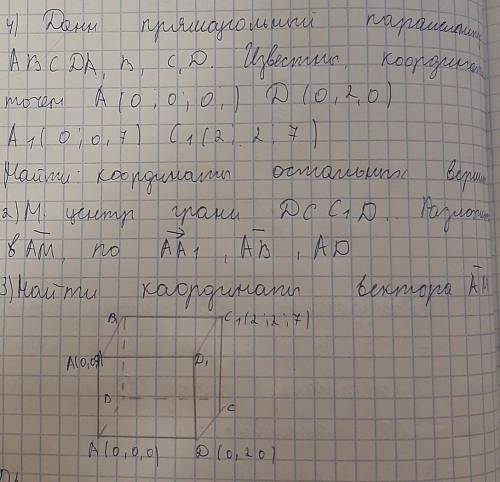 4) Дан прямоугольный
ABCDA, B, C, D. Известны координаты
точек A (0; 0; 0,) D (0, 2, 0)
A₁ (0; 0, 7) C₁ (2; 2; 7)
Найти координаты остальных верши
2) M центр грани DC C₁D. Разложит
в AM, по AA₁, AB, AD
3) Найти каординаты вектора AM
B C₁(2; 2; 7)
A(0,0, D₁
B C
A (0, 0, 0) D (0, 2 0)